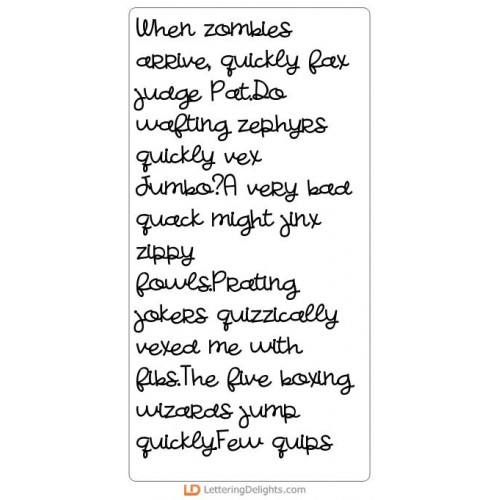 When zombies
arrive, quickly fax
judge Pat.Do
wafting zephyrs
quickly vex
Jumbo?A very bad
quack might jinx
zippy
fowls.Prating
jokers quizzically
vexed me with
fibs.The five boxing
wizards jump
quickly.Few quips
LD LetteringDelights.com